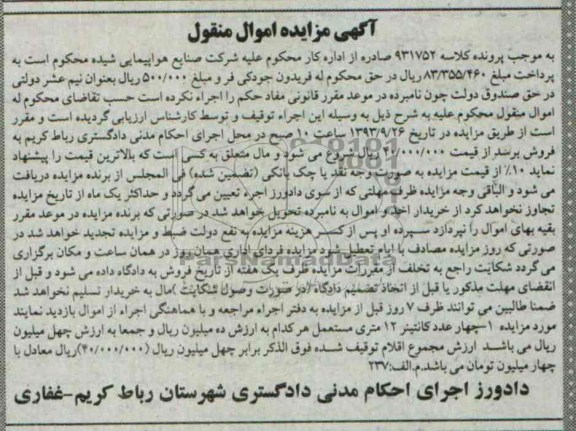 آگهی مزایده اموال منقول
به موجب پرونده کلاسه ۹۳۱۷۵۲ صادره از اداره کار محکوم علیه شرکت صنایع هواپیمایی شیده محکوم است به
پرداخت مبلغ ۸۳/۳۵۵/۴۶۰ ریال در حق محکوم له فریدون جودکی فر و مبلغ ۵۰۰/۰۰۰ ریال بعنوان نیم عشر دولتی
در حق صندوق دولت چون نامبرده در موعد مقرر قانونی مفاد حکم را اجراء نکرده است حسب تقاضای محکوم له
اموال منقول محکوم علیه به شرح ذیل به وسیله این اجراء توقیف و توسط کارشناس ارزیابی گردیده است و مقرر
است از طریق مزایده در تاریخ ۱۳۹۳/۹/۲۶ ساعت ۱۰ صبح در محل اجرای احکام مدنی دادگستری رباط کریم به
فروش برسد از قیمت شروع می شود و مال متعلق به کسی است که بالاترین قیمت را پیشنهاد
نماید ۱۰٪ از قیمت مزایده به صورت وجه نقد یا چک بانکی (تضمین شده) فی المجلس از برنده مزایده دریافت
می شود و الباقی وجه مزایده ظرف مهلتی که از سوی دادورز اجره تعیین می گردد و حداکثر یک ماه از تاریخ مزایده
تجاوز نخواهد کرد از خریدار اخذ و اموال به نامبرده تحویل خواهد شد در صورتی که برنده مزایده در موعد مقرر
بقیه بهای اموال را نپردازد سپرده او پس از کسر هزینه مزایده به نفع دولت ضبط و مزایده تجدید خواهد شد در
صورتی که روز مزایده مصادف با ایام تعطیل شود مزایده فردای اداری همان روز در همان ساعت و مکان برگزاری
می گردد شکایت راجع به تخلف از مقررات مزایده ظرف یک هفته از تاریخ فروش به دادگاه داده می شود و قبل از
انقضای مهلت مذکور یا قبل از اتخاذ تصمیم دادگاه (در صورت وصول شکایت )مال به خریدار تسلیم نخواهد شد
ضمنا طالبین می توانند ظرف ۷ روز قبل از مزایده به دفتر اجراء مراجعه و با هماهنگی اجراء از اموال بازدید نمایند
مورد مزایده ۱-چهار عدد کانتینر ۱۲ متری مستعمل هر کدام به ارزش ده میلیون ریال و جمعا به ارزش چهل میلیون
ریال می باشد ارزش مجموع اقلام توقیف شده فوق الذکر برابر چهل میلیون ریال (۴۰/۰۰۰/۰۰۰)ریال معادل با
چهار میلیون تومان می باشد.م.الف:۲۳۷
دادورز اجرای احکام مدنی دادگستری شهرستان رباط کریم-غفاری
ParsNamadData